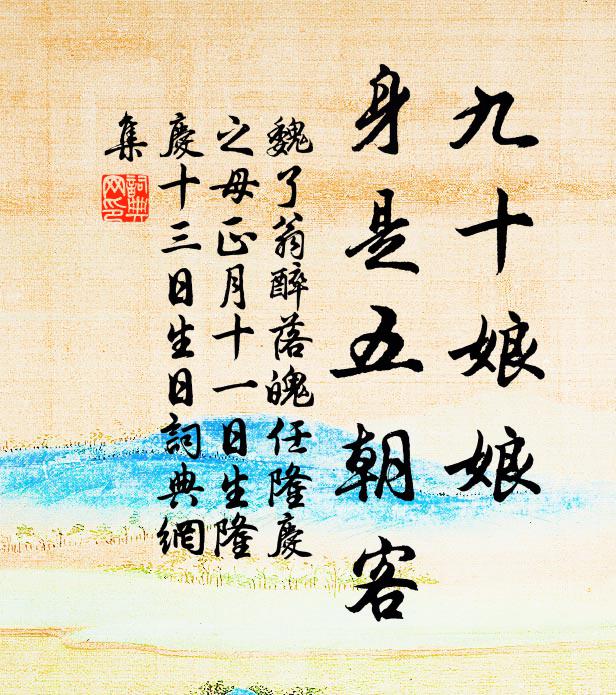 九十娘娘
身是五朝客
魏了翁醉落魄任隆慶
之母正月十一日生隆
慶十三日生日詞典網
集
詞典
网印